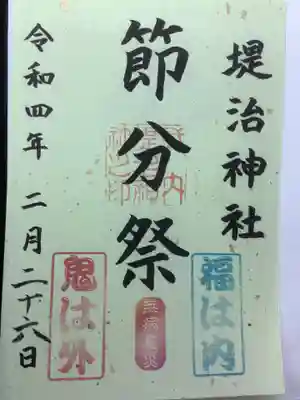 堤治神社
節分祭
令和四年 二月二十六日
福は内
鬼は外